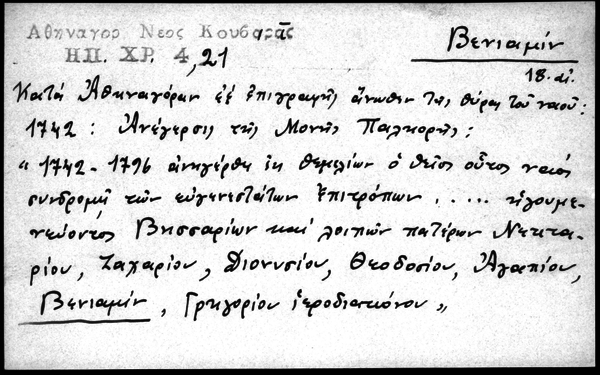 Αθηναγορ Νεος Κουβαρᾶς
ΗΠ. ΧΡ. 4, 21
Βενιαμίν
18. αἰ.
Κατά Ἀθηναγόραν ἐξ ἐπιγραφῆς ἄνωθεν τῆς θύρας τοῦ ναοῦ:
1742: Ἀνέγερσις τῆς Μονῆς Παλιορῆς:
"1742-1796 ἀνηγέρθη ἐκ θεμελίων ὁ θεῖος οὗτος ναός
συνδρομῇ τῶν εὐγενεστάτων ἐπιτρόπων ..... ἡγουμε-
νεύοντος Βησσαρίων καί λοιπῶν πατέρων Νεκτα-
ρίου, Ζαχαρίου, Διονυσίου, Θεοδοσίου, Ἀγαπίου,
Βενιαμίν, Γρηγορίου ἱεροδιακόνου"